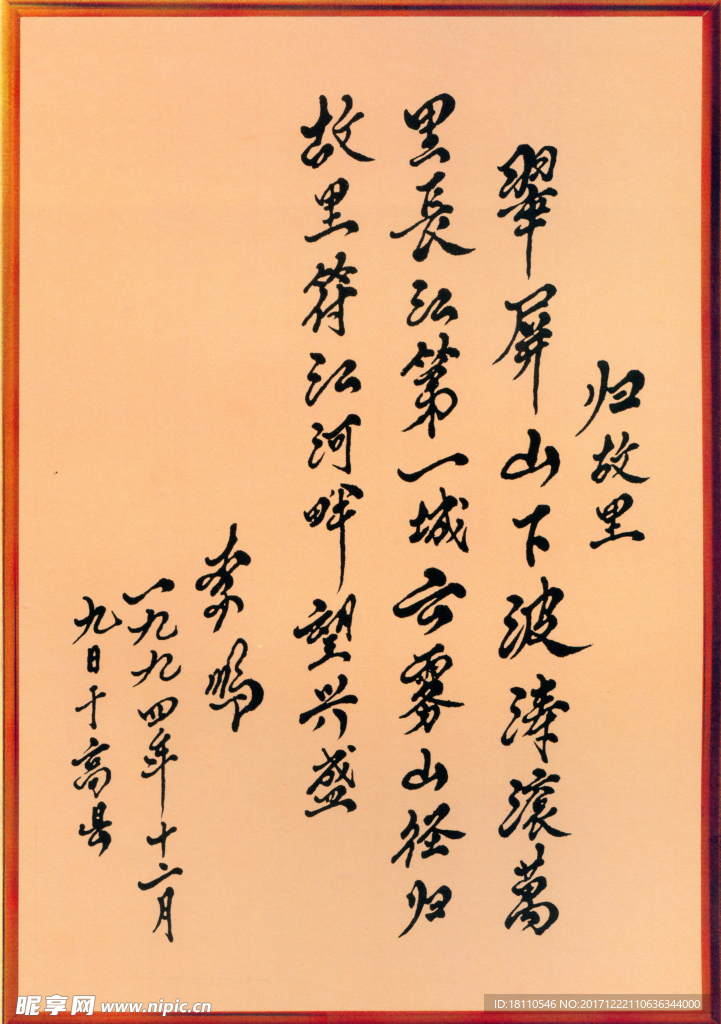 归故里
翠屏山下波涛滚萬
里長江第一城云雾山径归
故里符江河畔望兴盛
李鹏
一九九四年十二月
九日于高县
昵享网 www.nipic.cn
ID:18110546 NO:20171222110636344000